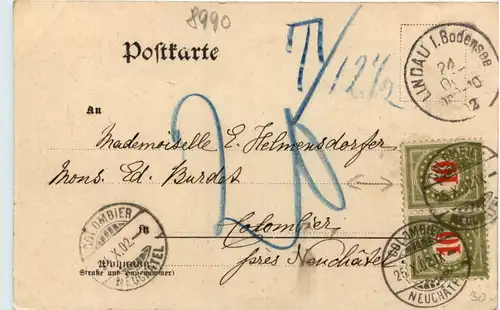 8990
Postkarte
T/12 1/2
LINDAU i. Bodensee
An
Mademoiselle E. Helmensdorfer
Mons. Ed. Burdet
20
10
COLOMBIER
X.02
NEUCHATEL
in
Colombier
Wohnung
près Neuchâtel
Straße und Hausnummer)
10
COLOMBIER
NEUCHATEL
30